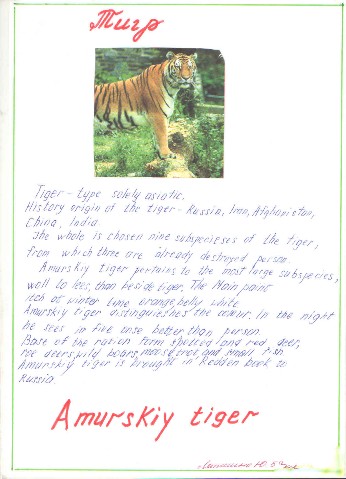 Тигр
Tiger - type solely asiatic.
History origin of the tiger - Russia, Iran, Afghanistan,
China, India.
The whole is chosen nine subspecieses of the tiger,
from which three are already destroyed person.
Amurskiy tiger pertains to the most large subspecies,
wall to lees, than beside tiger. The Main paint
ich at winter time orange, belly white
Amurskiy tiger distinguishes the colour. In the night
he sees in five once better than person.
Base of the ration form spotted and red deer,
roe deers, wild boars, and small fish
Amurskiy tiger is brought in Redden book to
Russia.
Amurskiy tiger